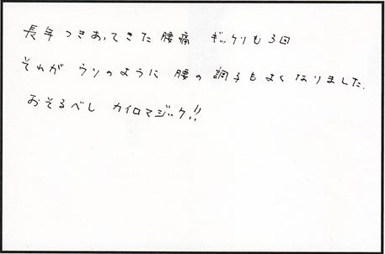 長年つきあってきた腰痛 ギックリも3回
それがウソのように腰の調子もよくなりました.
おそるべし カイロマジック!!